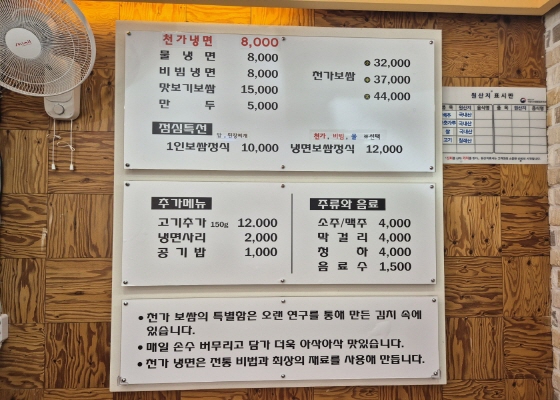 천가냉면 8,000
물냉면 8,000
비빔냉면 8,000
맛보기보쌈 15,000
만두 5,000
천가보쌈
소 32,000
중 37,000
대 44,000
점심특선
1인보쌈정식 10,000
천가, 비빔, 물 中 선택
냉면보쌈정식 12,000
추가메뉴
고기추가 150g 12,000
냉면사리 2,000
공기밥 1,000
주류와 음료
소주/맥주 4,000
막걸리 4,000
청하 4,000
음료수 1,500
• 천가 보쌈의 특별함은 오랜 연구를 통해 만든 김치 속에
있습니다.
• 매일 손수 버무리고 담가 더욱 아삭아삭 맛있습니다.
• 천가 냉면은 전통 비법과 최상의 재료를 사용해 만듭니다.
원산지 표시판